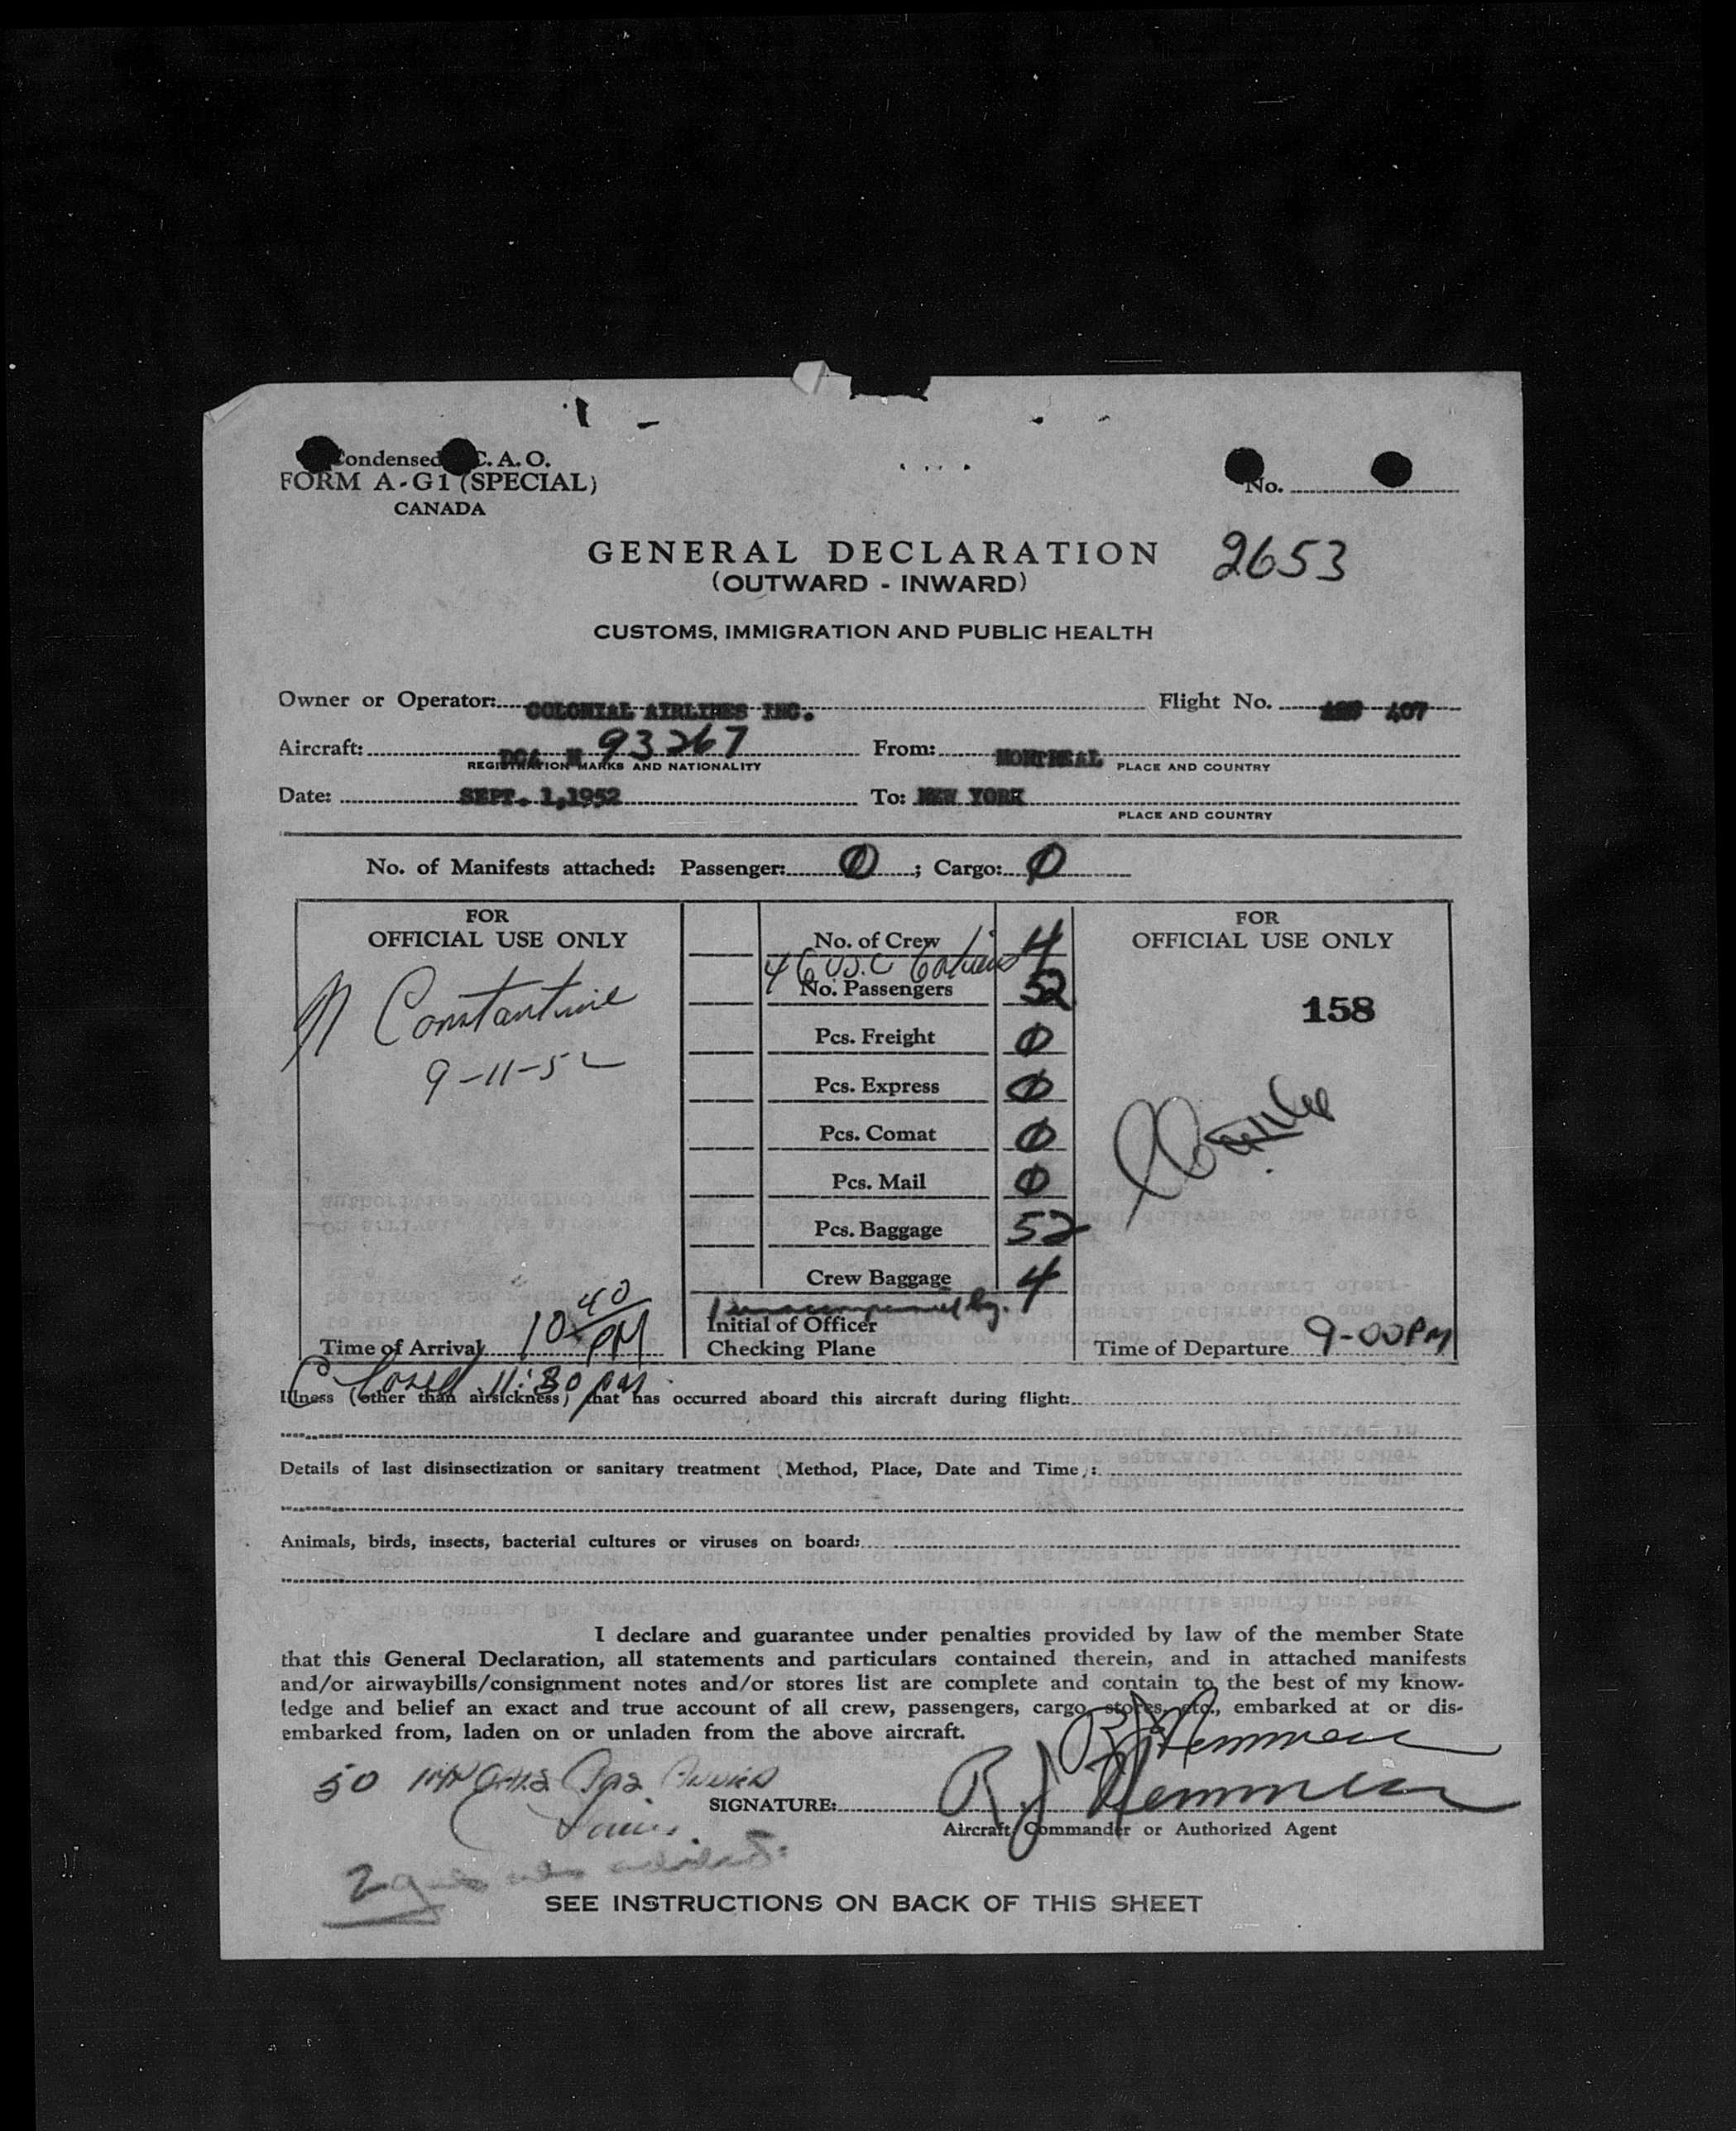 Condensed C. A. O.
FORM A-G1 (SPECIAL)
CANADA
No.
2653
GENERAL DECLARATION
(OUTWARD - INWARD)
CUSTOMS, IMMIGRATION AND PUBLIC HEALTH
Owner or Operator: COLONIAL AIRLINES INC. Flight No. 407
Aircraft: DC4 N 93267 From: MONTREAL
REGISTRATION MARKS AND NATIONALITY PLACE AND COUNTRY
Date: SEPT. 1,1952 To: NEW YORK
PLACE AND COUNTRY
No. of Manifests attached: Passenger: 0 ; Cargo: 0
FOR
OFFICIAL USE ONLY
N Constantine
9-11-52
Time of Arrival 10 40 PM
No. of Crew 4
46 U.S.C
No. Passengers 52
Pcs. Freight 0
Pcs. Express 0
Pcs. Comat 0
Pcs. Mail 0
Pcs. Baggage 52
Crew Baggage 4
1 unaccompanied bg.
Initial of Officer
Checking Plane
FOR
OFFICIAL USE ONLY
158
Time of Departure 9-00PM
Closed 11:30 pm
Illness (other than airsickness) that has occurred aboard this aircraft during flight:
Details of last disinsectization or sanitary treatment (Method, Place, Date and Time):
Animals, birds, insects, bacterial cultures or viruses on board:
I declare and guarantee under penalties provided by law of the member State
that this General Declaration, all statements and particulars contained therein, and in attached manifests
and/or airwaybills/consignment notes and/or stores list are complete and contain to the best of my know-
ledge and belief an exact and true account of all crew, passengers, cargo, stores, etc., embarked at or dis-
embarked from, laden on or unladen from the above aircraft.
50
SIGNATURE: R J
Aircraft Commander or Authorized Agent
2
SEE INSTRUCTIONS ON BACK OF THIS SHEET